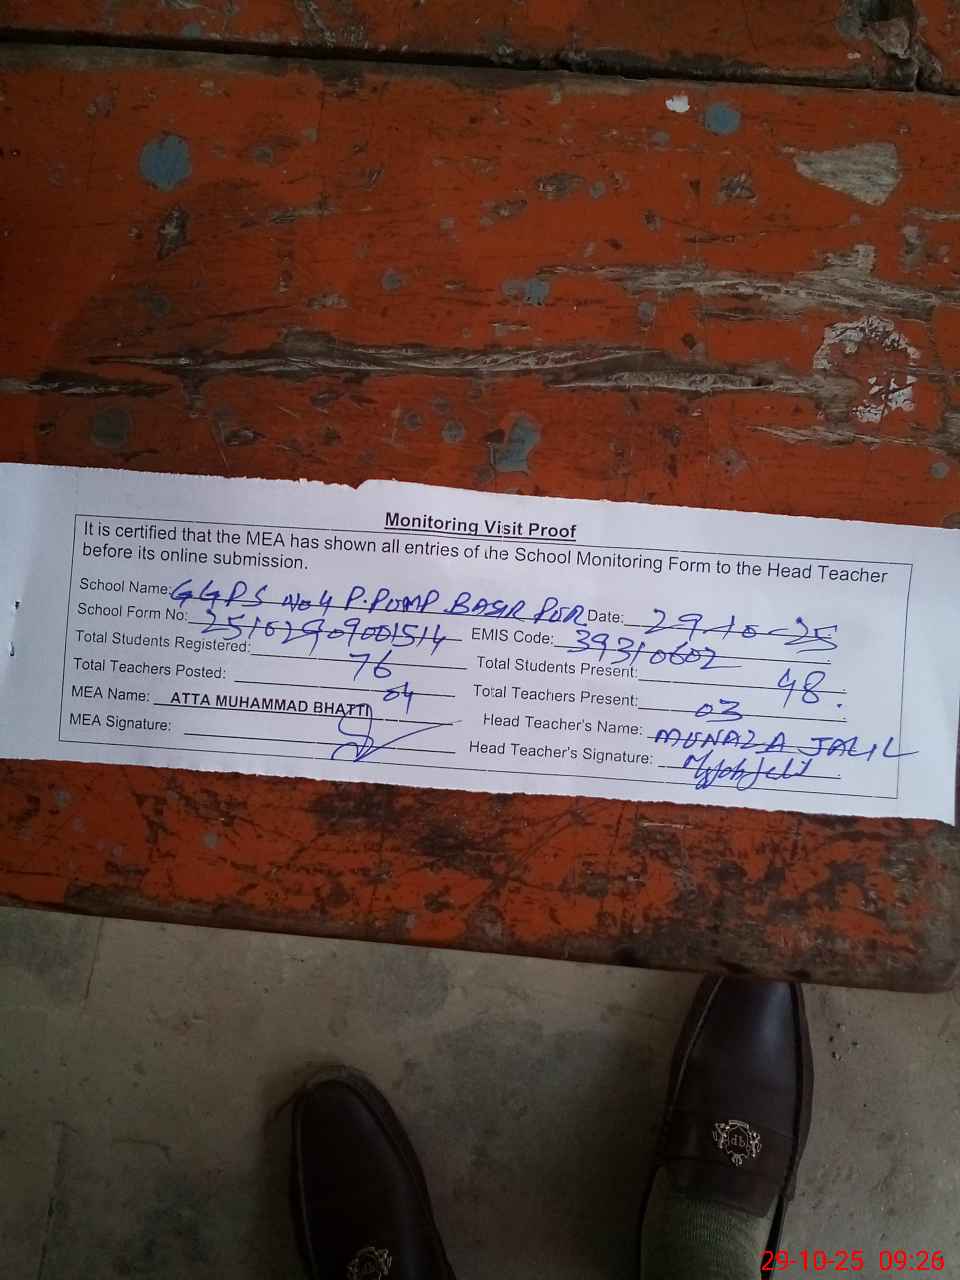 Monitoring Visit Proof
It is certified that the MEA has shown all entries of the School Monitoring Form to the Head Teacher
before its online submission.
School Name: GGPS No 4 P.PUMP BASIR PUR Date: 29-10-25
School Form No: 25102909001514 EMIS Code: 39310602
Total Students Registered: 76 Total Students Present: 48
Total Teachers Posted: 04 Total Teachers Present: 03
MEA Name: ATTA MUHAMMAD BHATTI Head Teacher's Name: MUNAZA JALIL
MEA Signature: Head Teacher's Signature:
29-10-25 09:26